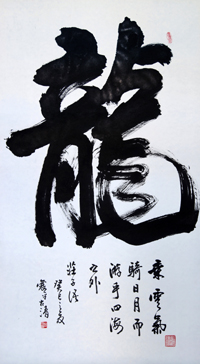 龍
乘雲氣
騎日月而
游乎四海
之外
莊子語
癸巳之夏